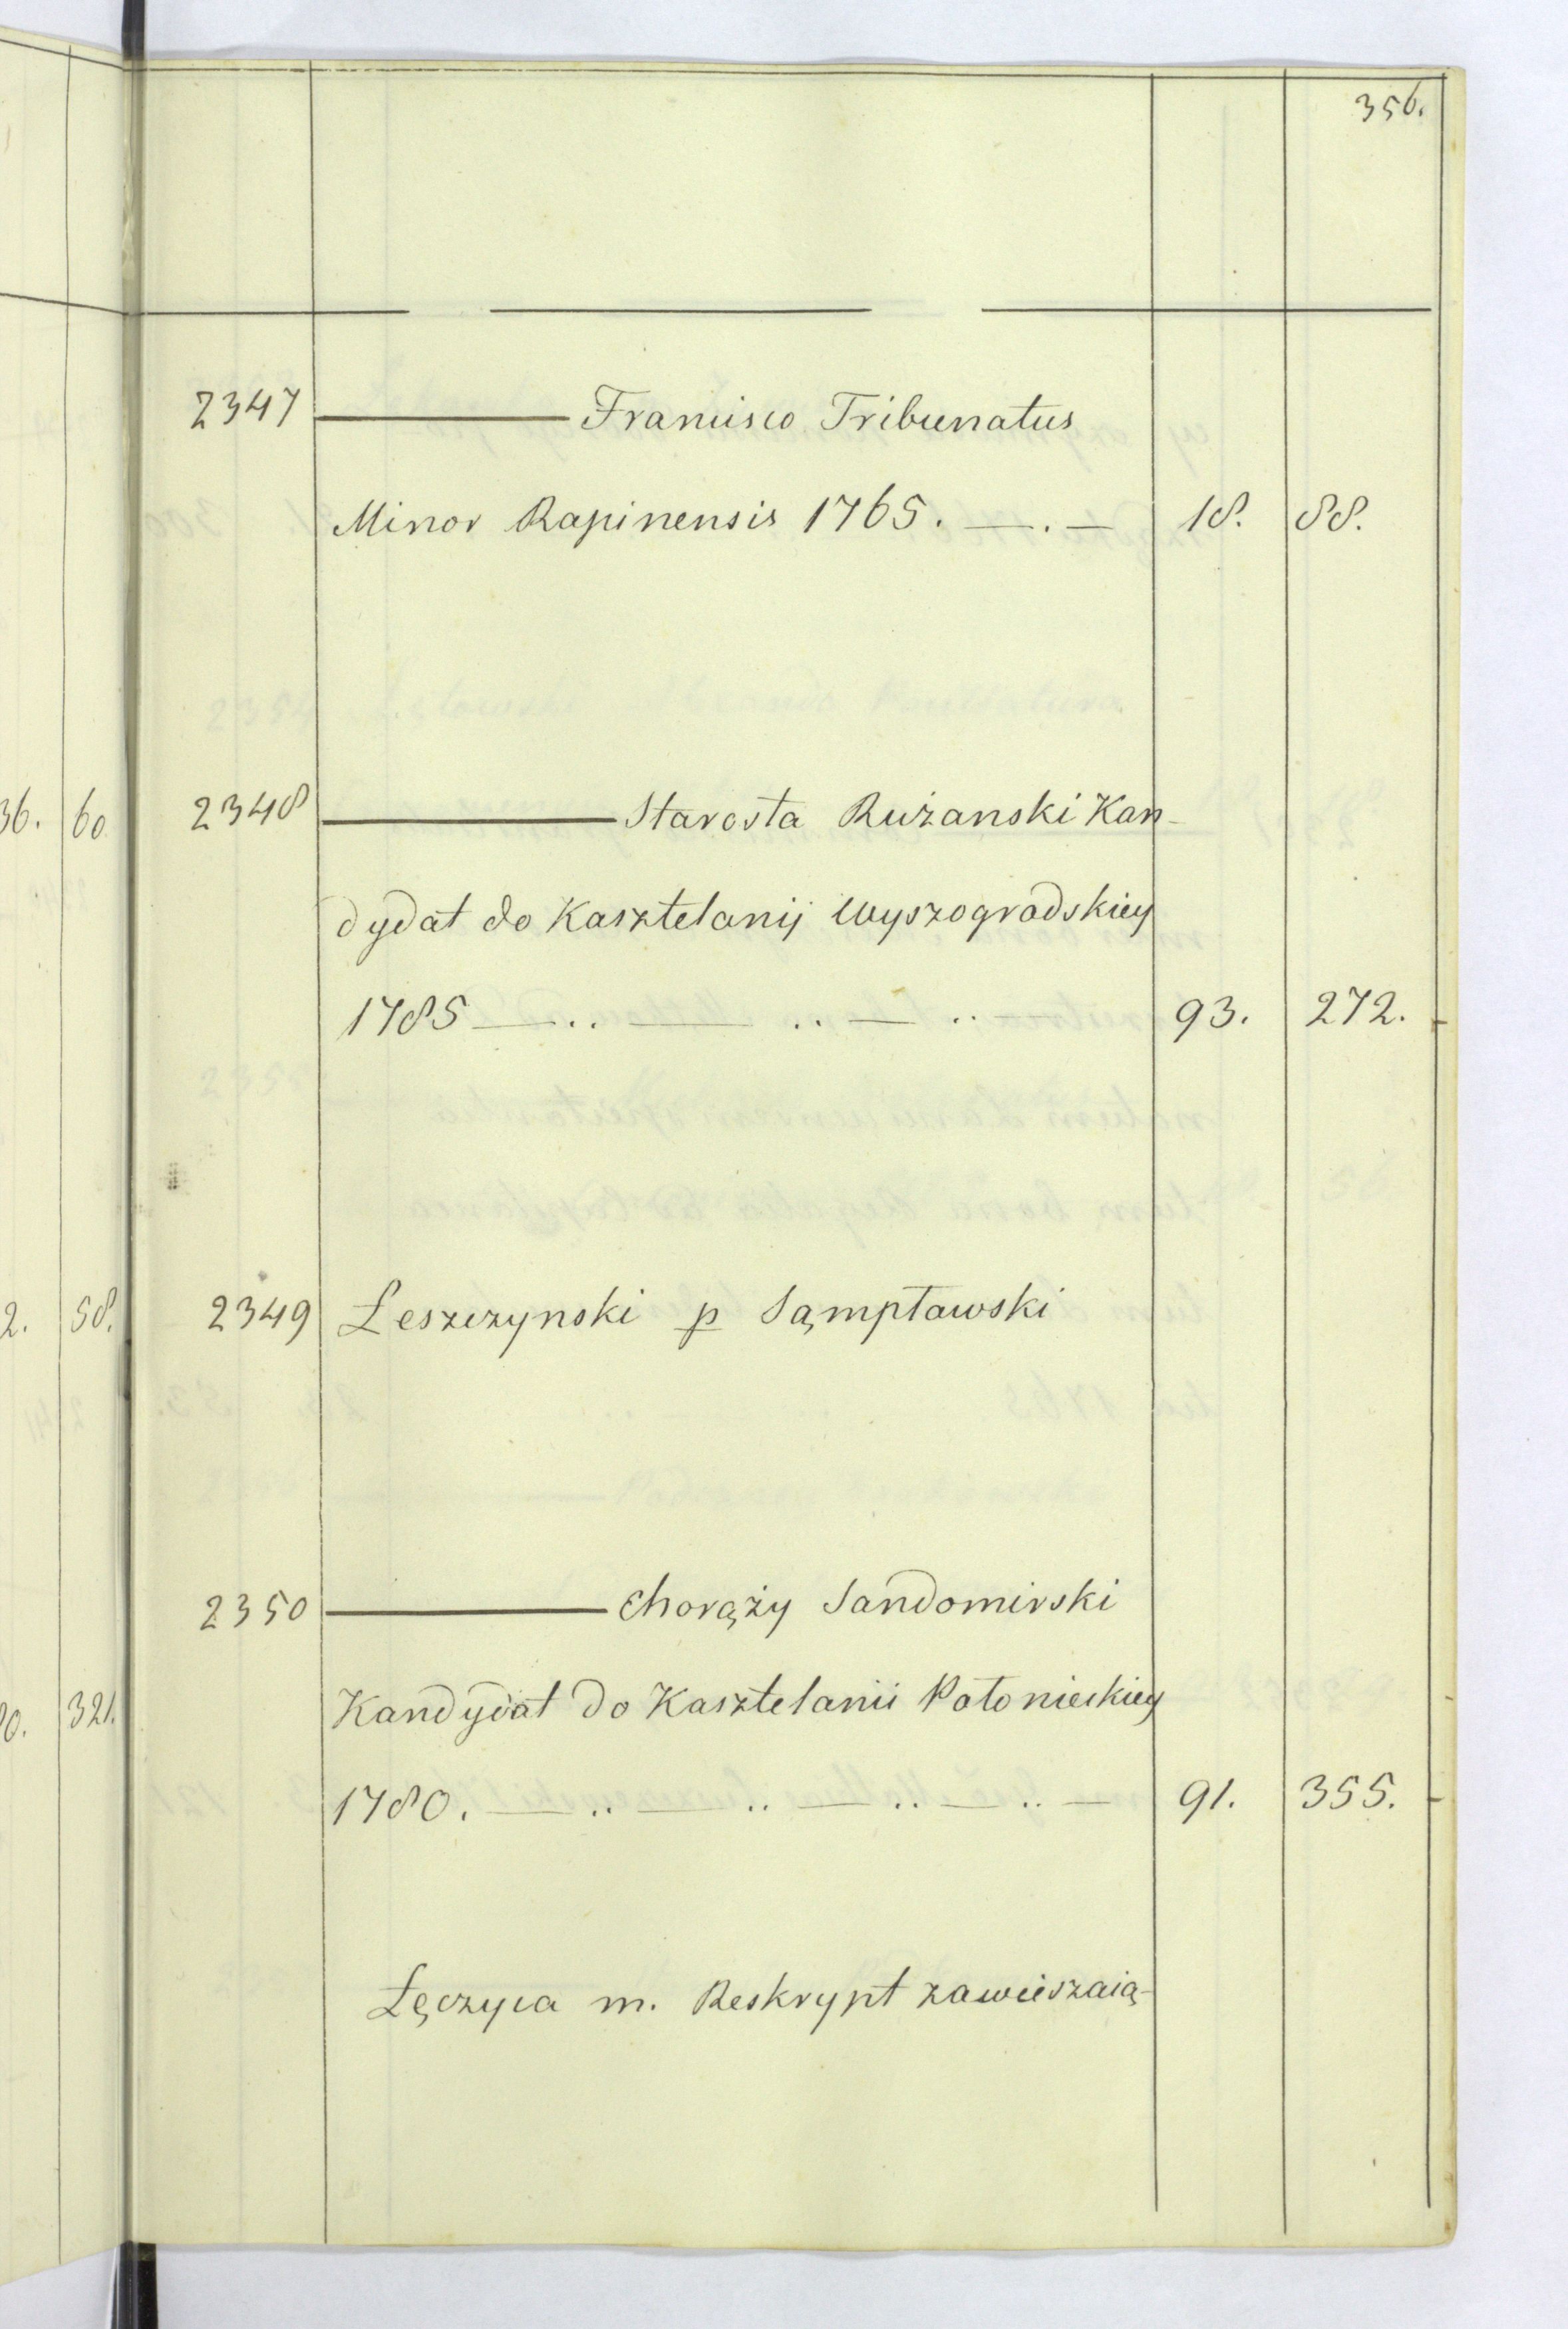 356.
2347 ——— Francisco Tribunatus
Minor Rapinensis 1765. —.— 18. 88.
36. 60
2348 ——— Starosta Rużanski Kan-
dydat do Kasztelanij Wyszogrodskiey
1785 —..— ..—.. 93. 272.
2. 58.
2349 Leszczynski p Sąmpławski
2350 ——— Chorąży Sandomirski
Kandydat do Kasztelanii Połonieckiey
321.
1780. —..—..—..—..— 91. 355.
Łęczyca m. Reskrypt zawieszaią-